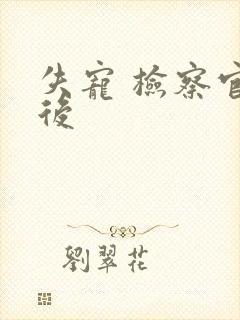 失寵 檢察官
後
劉翠花